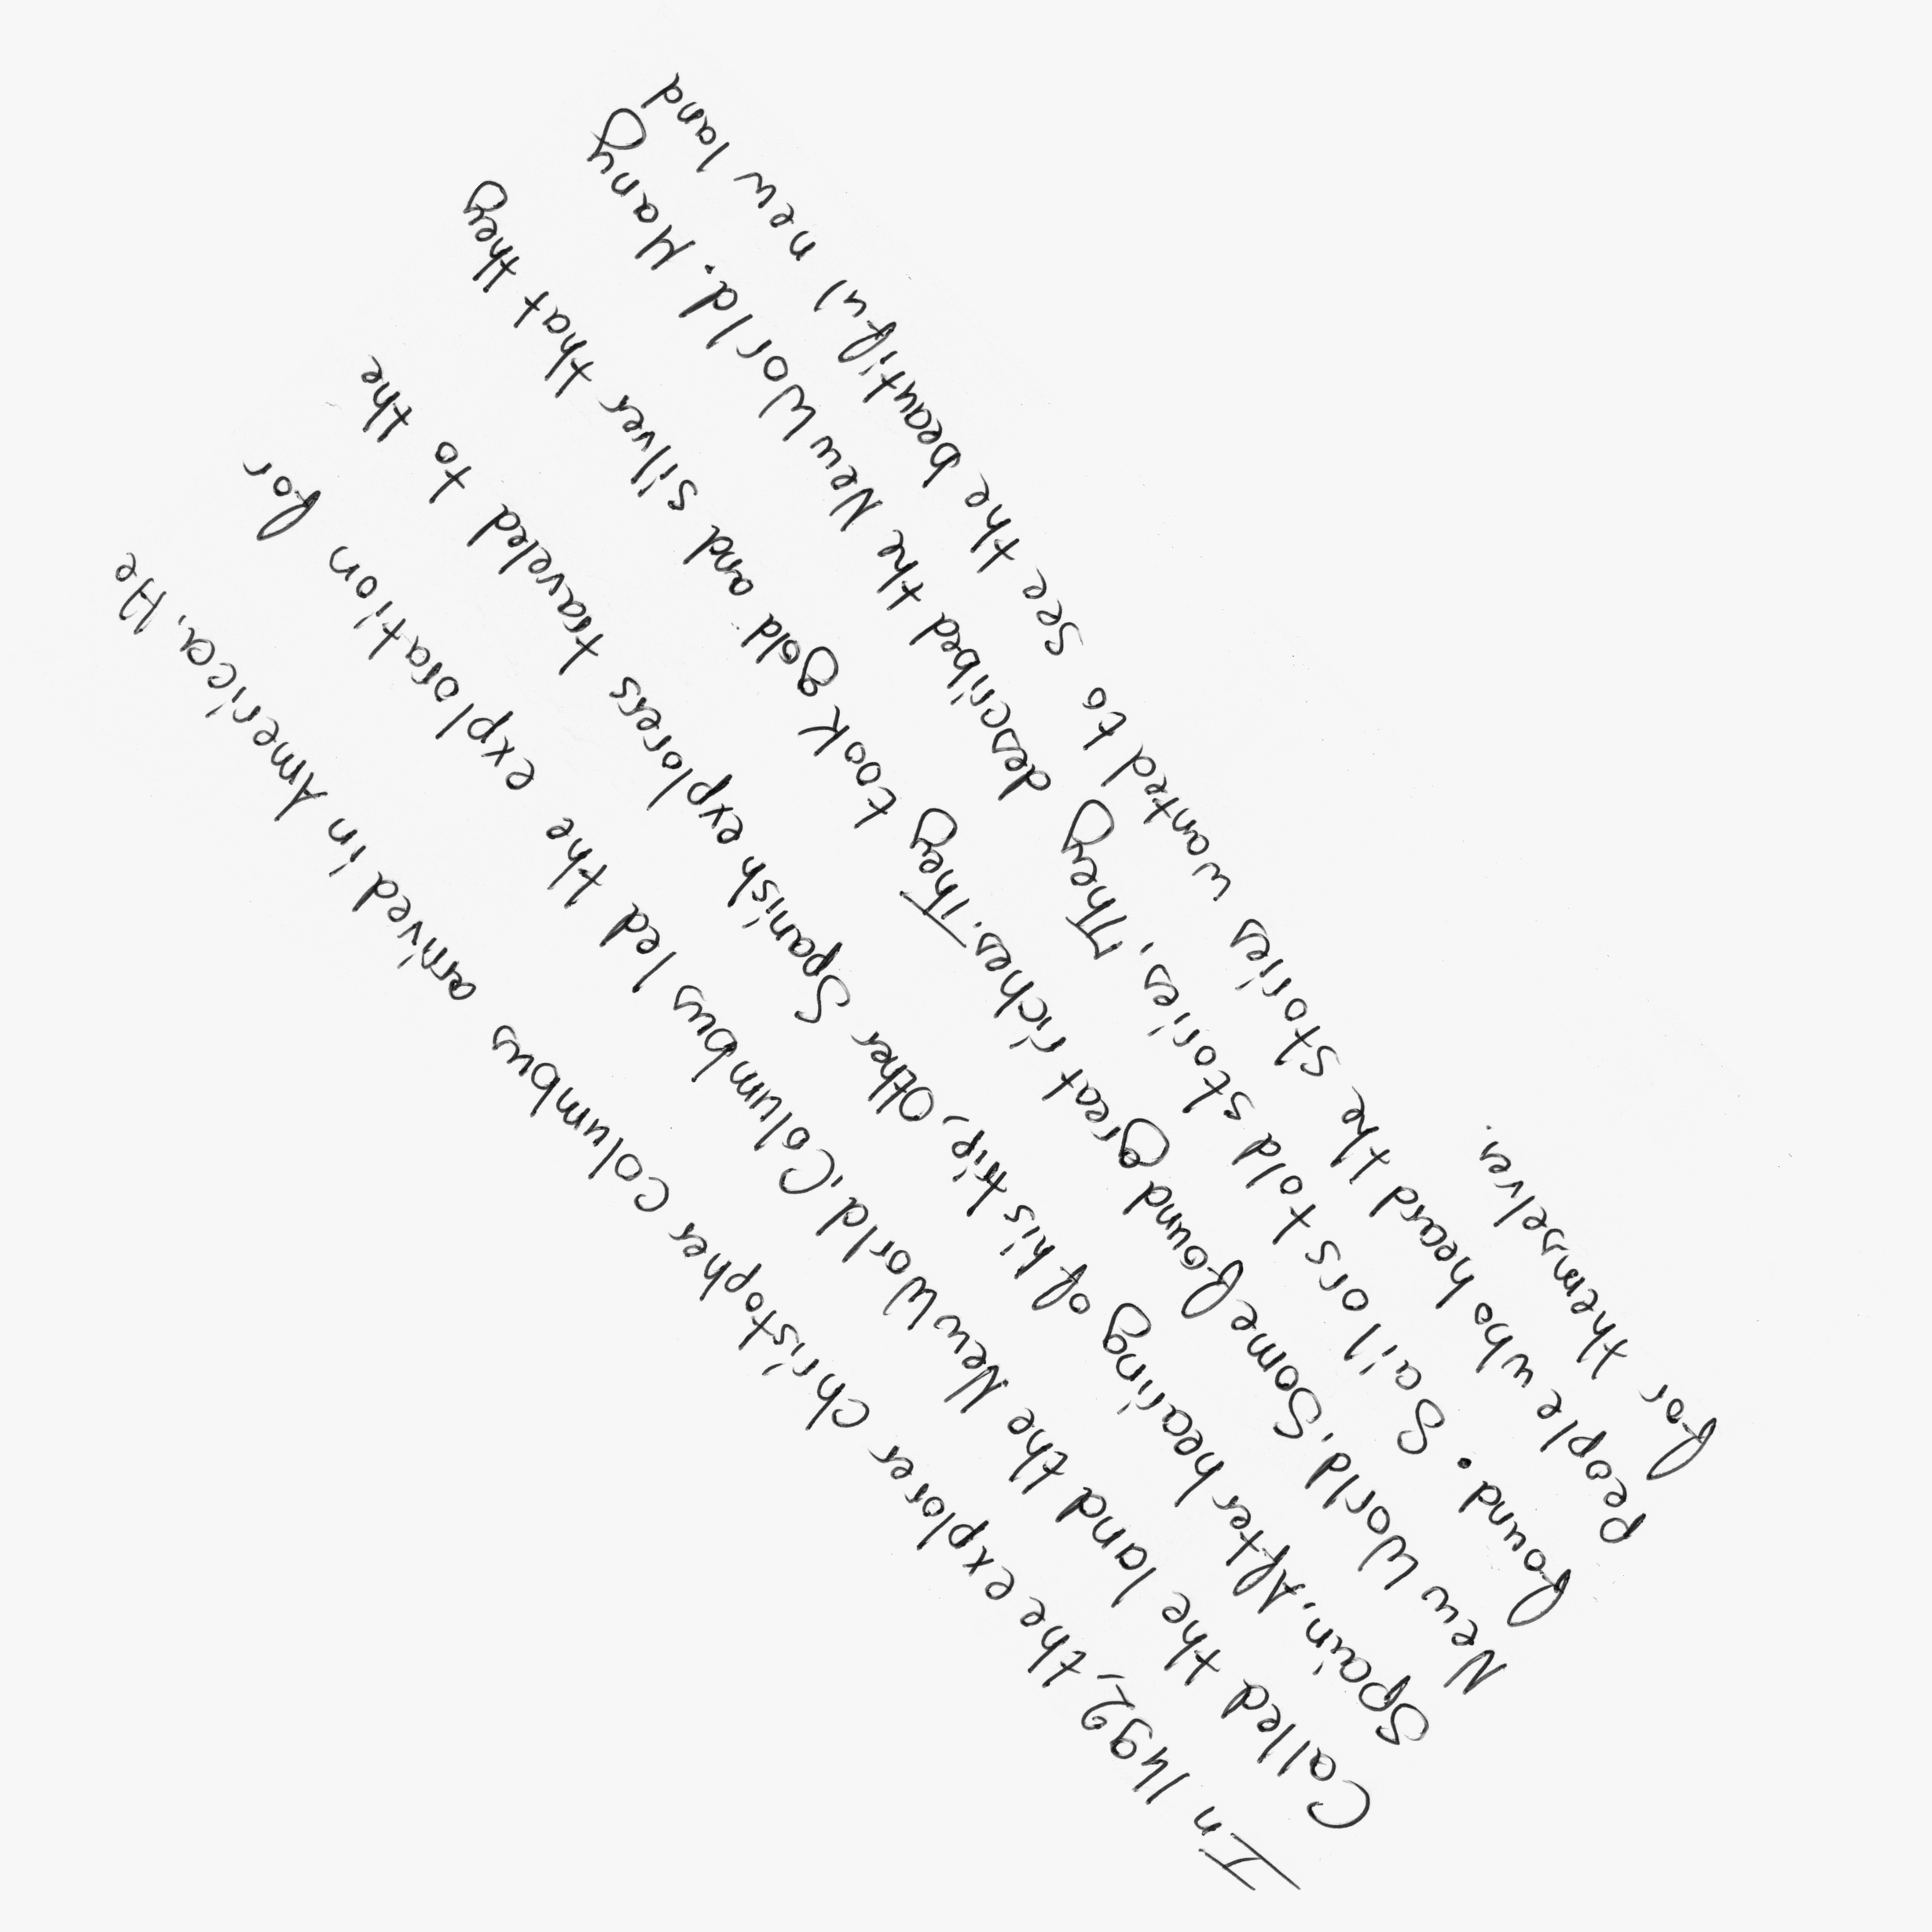 In 1492, the explorer christopher columbus arrived in Americea. He
Called the land the New World. Columbus led the exploration for
Spain. After hearing of his trip, Other Spanish explorers traveled to the
New World. Some found great riches. They took gold and silver that they
found. Sailors told stories. They described the New World. Many
people who heard the stories wanted to see the beautiful new land
for themselves.